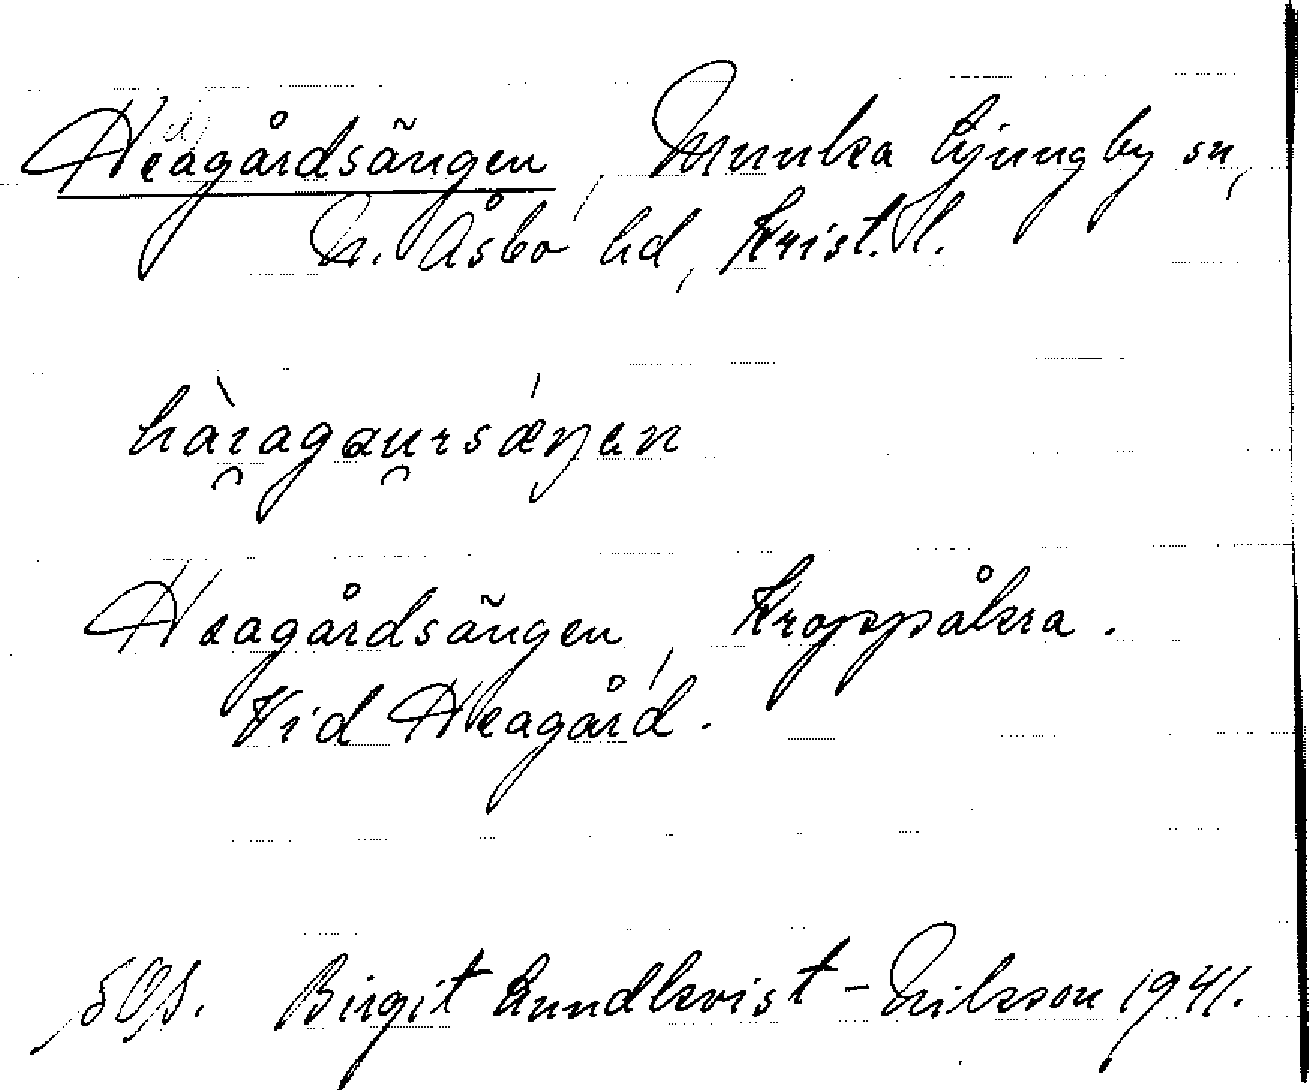 Heagårdsängen, Munka Ljungby sn,
N. Åsbo hd, Krist. l.
hàɪ̯agau̯rsæŋen
Heagårdsängen, Kroppåkra.
Vid Heagård.
Birgit Lundkvist-Nilsson 1941.